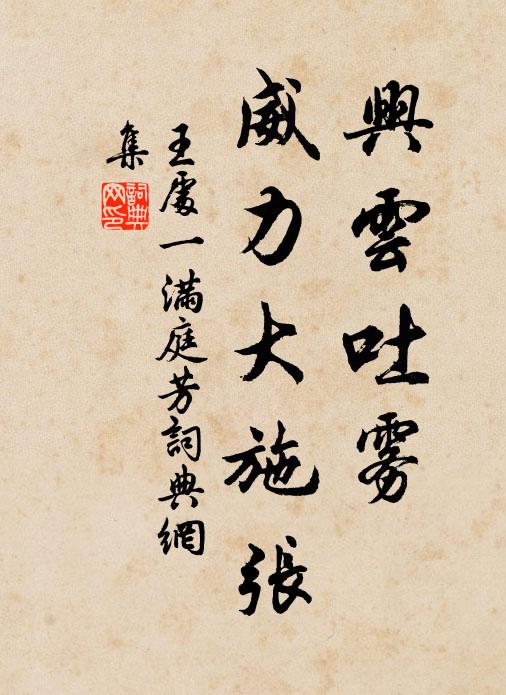 興雲吐雾
威力大施張
王處一滿庭芳詞典網
集
詞典
网印